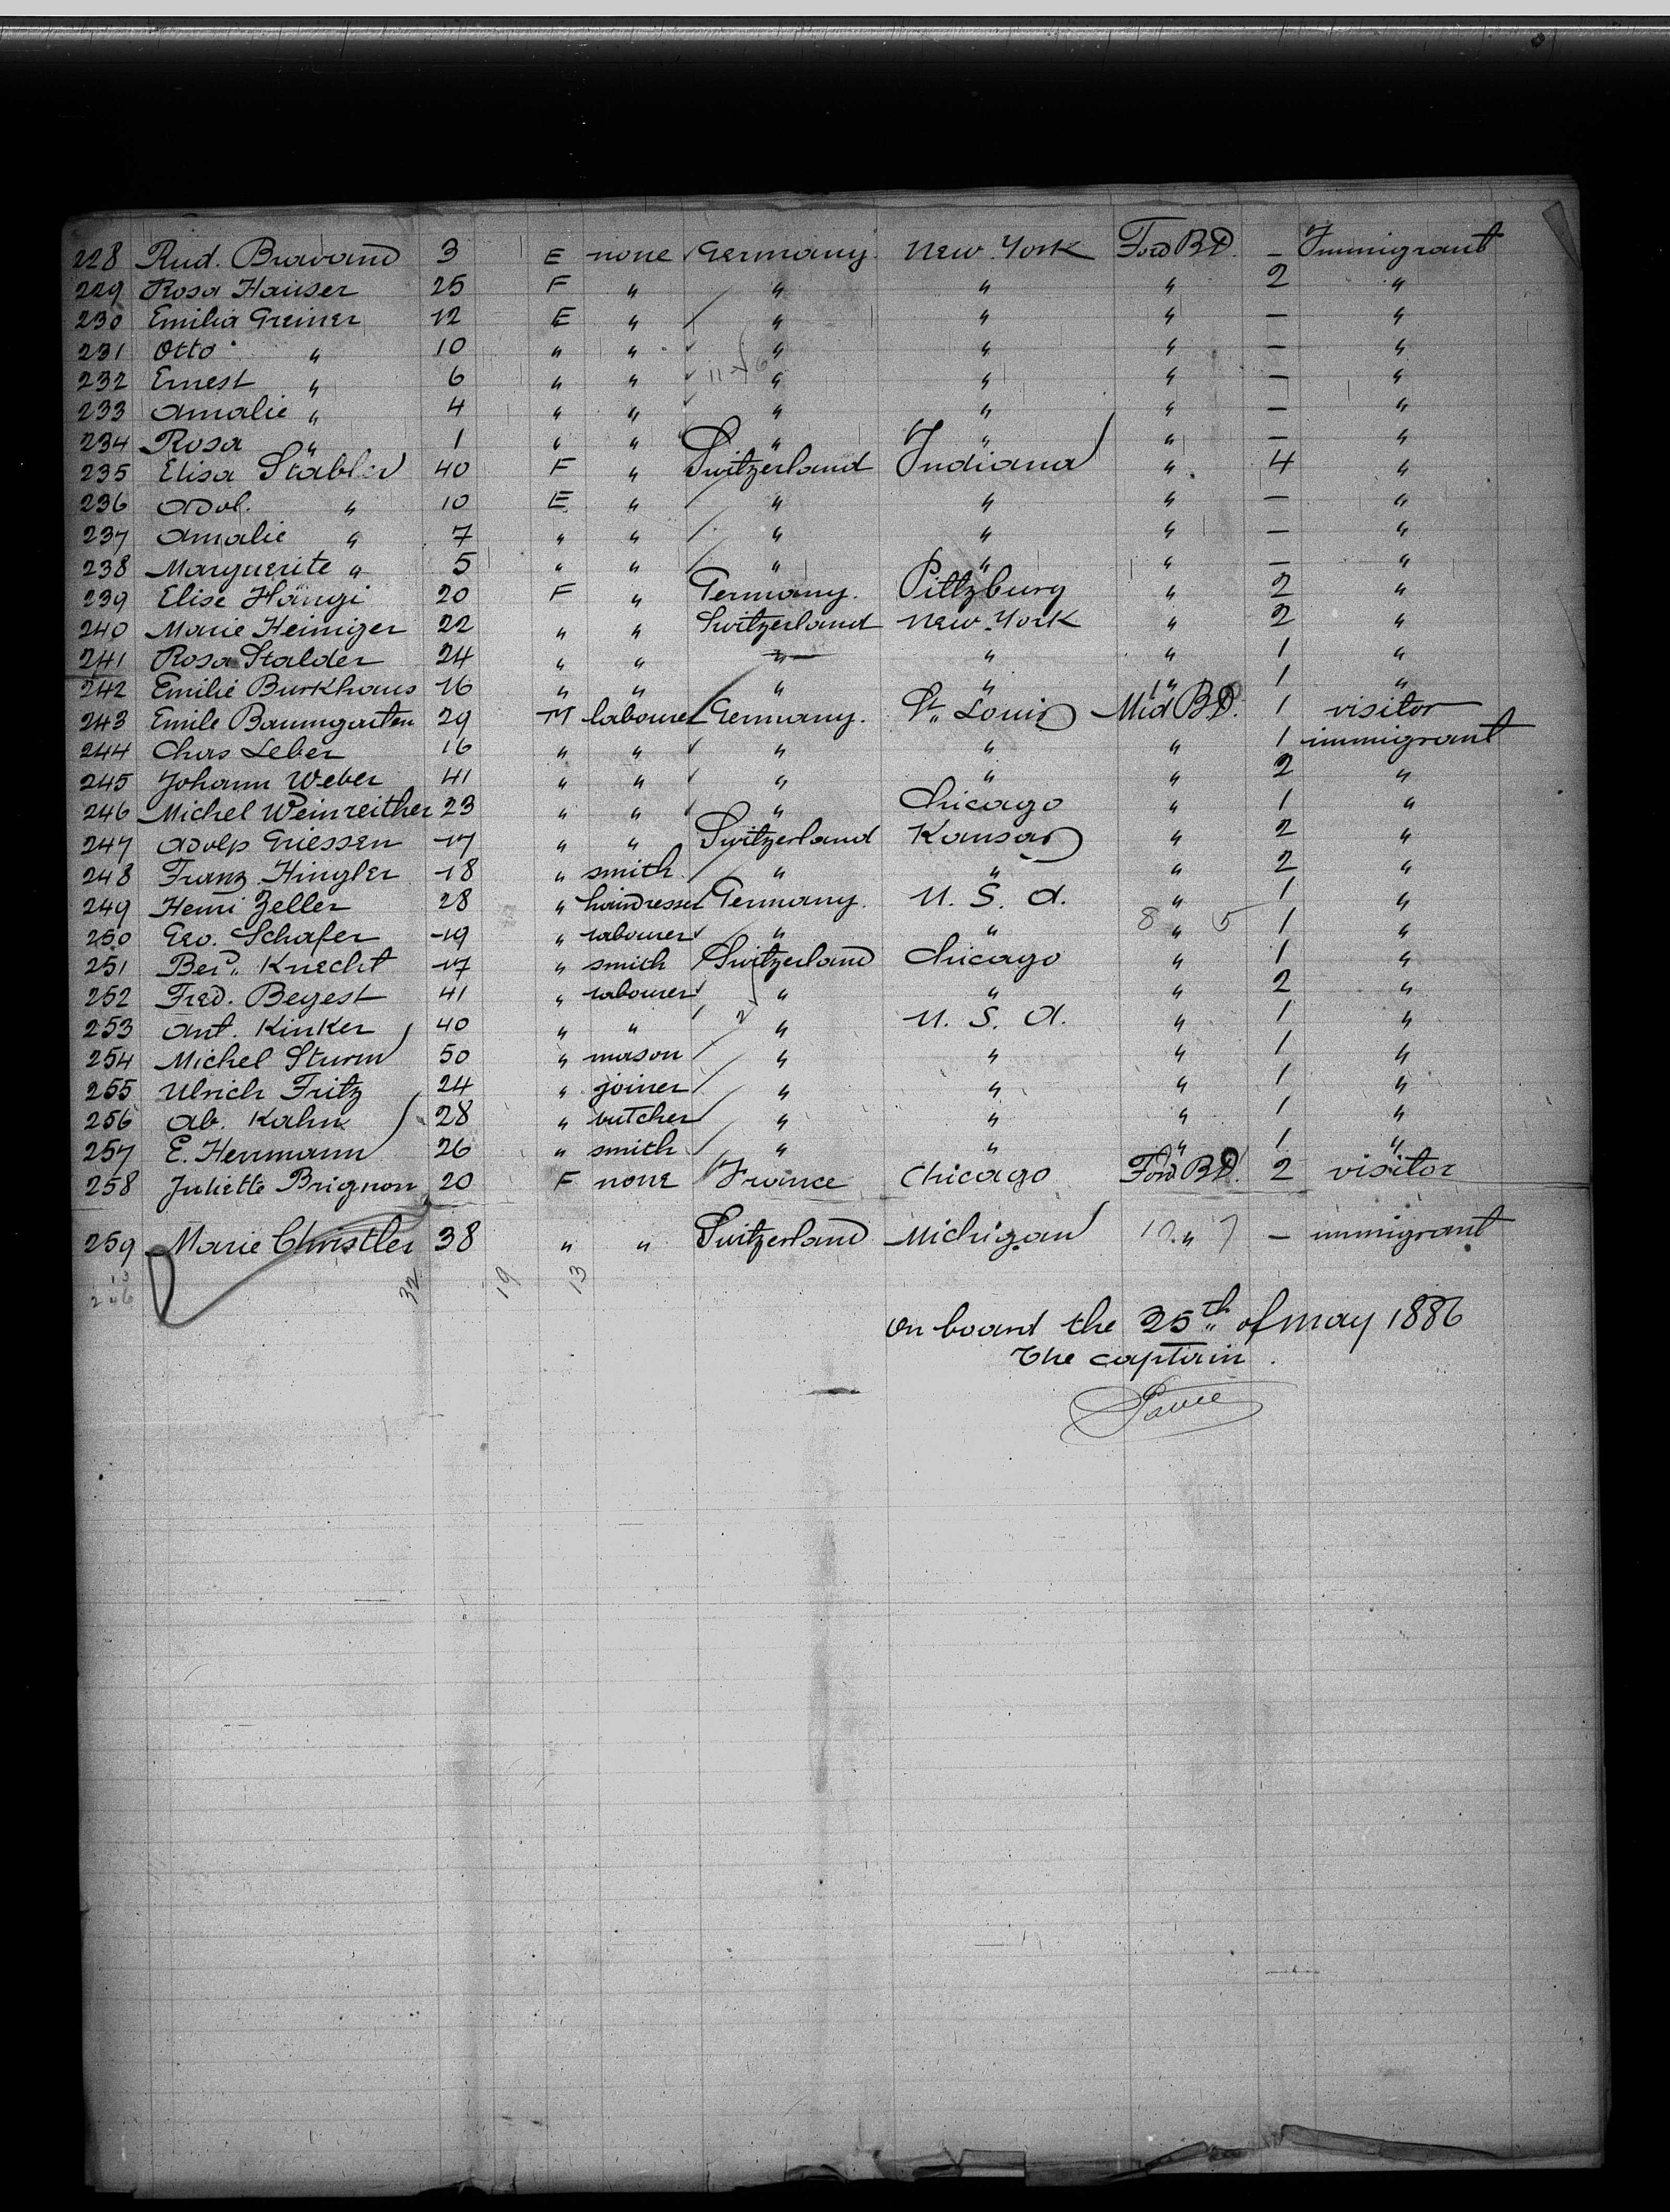 228 Rud. Bravand 3 E none Germany. New York Ford BD. — Immigrant
229 Rosa Hauser 25 F " " " " 2 "
230 Emilia Greiner 12 E " " " " — "
231 Otto " 10 " " " " " — "
232 Ernest " 6 " " " " " — "
233 Amalie " 4 " " " " " — "
234 Rosa " 1 " " " " " — "
235 Elisa Stabler 40 F " Switzerland Indiana " 4 "
236 Adol. " 10 E " " " " — "
237 Amalie " 7 " " " " " — "
238 Marguerite " 5 " " " " " — "
239 Elise Hängi 20 F " Germany. Pittzburg " 2 "
240 Marie Heiniger 22 " " Switzerland New York " 2 "
241 Rosa Stalder 24 " " " " " 1 "
242 Emilie Burkhaus 16 " " " " " 1 "
243 Emile Baumgarten 29 M labourer Germany. St. Louis Mid BD. 1 visitor
244 Chas Leber 16 " " " " " 1 immigrant
245 Johann Weber 41 " " " " " 2 "
246 Michel Weinreither 23 " " " Chicago " 1 "
247 Adolp Griessen 17 " " Switzerland Kansas " 2 "
248 Franz Hingler 18 " smith " " " 2 "
249 Henri Zeller 28 " hairdresser Germany. U. S. A. " 1 "
250 Geo. Schafer 19 " labourer " " 8 " 5 1 "
251 Berd. Knecht 17 " smith Switzerland Chicago " 1 "
252 Fred. Begest 41 " labourer " " " 2 "
253 Ant. Kinker 40 " " " U. S. A. " 1 "
254 Michel Sturm 50 " mason " " " 1 "
255 Ulrich Fritz 24 " joiner " " " 1 "
256 Ab. Kahn 28 " butcher " " " 1 "
257 E. Herrmann 26 " smith " " " 1 "
258 Juliette Brignon 20 F none France Chicago Ford BD. 2 visitor
259 Marie Christler 38 " " Switzerland Michigan " — immigrant
32 19 13
On board the 25th of may 1886
The captain.